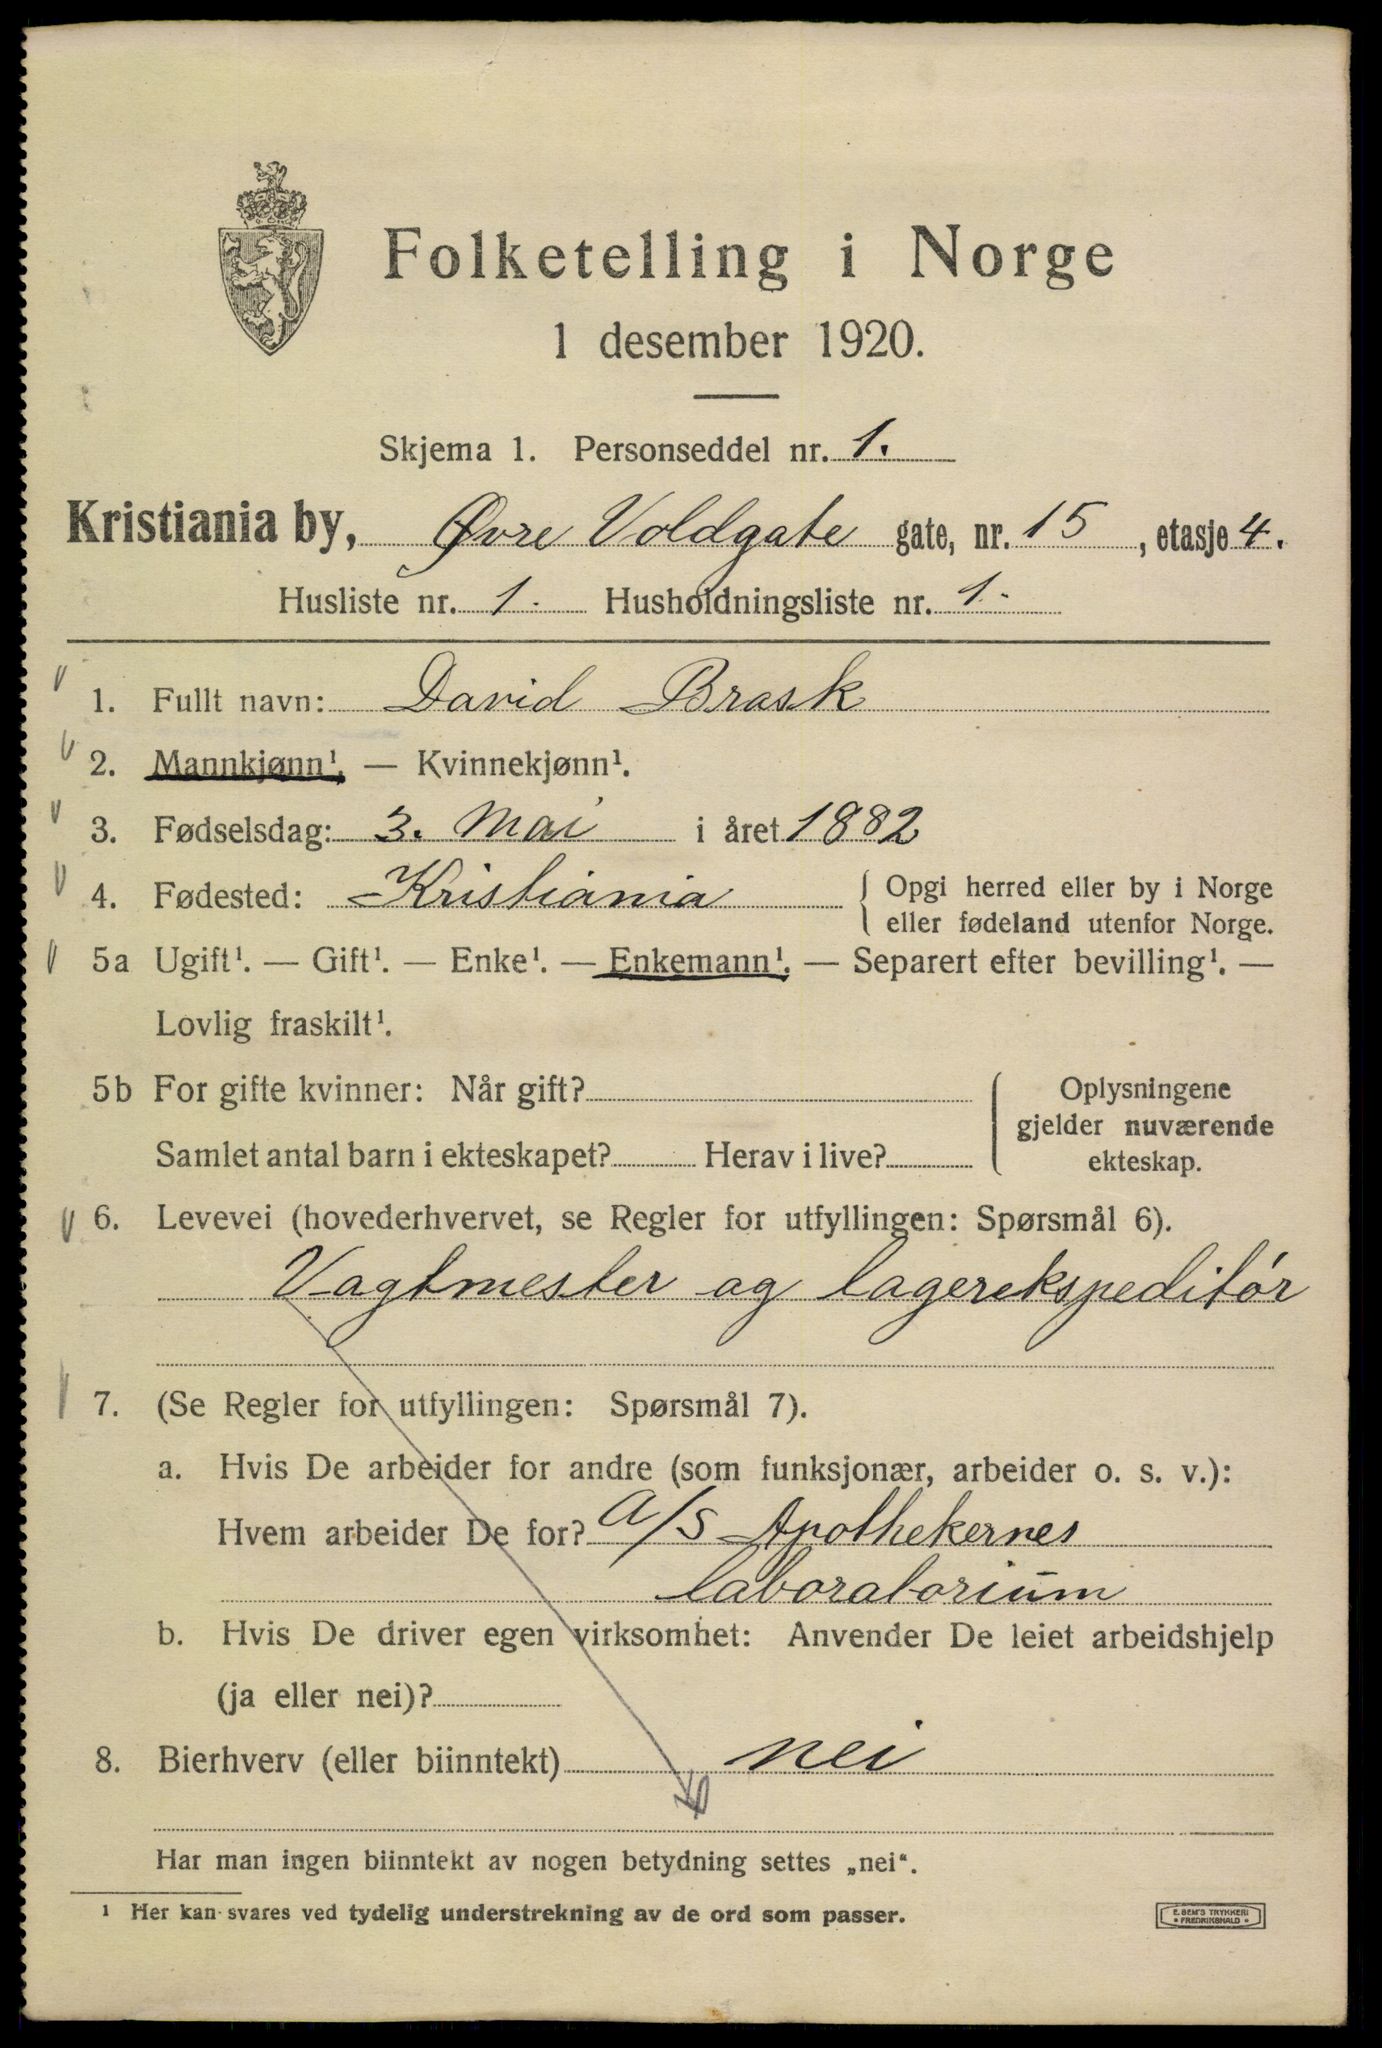 Folketelling i Norge
1 desember 1920.
Skjema 1. Personseddel nr. 1.
Kristiania by, Øvre Voldgate gate, nr. 15, etasje 4.
Husliste nr. 1. Husholdningsliste nr. 1.
1. Fullt navn: David Brask
2. Mannkjønn¹. — Kvinnekjønn¹.
3. Fødselsdag: 3. Mai i året 1882
4. Fødested: Kristiania { Opgi herred eller by i Norge
eller fødeland utenfor Norge.
5a Ugift¹. — Gift¹. — Enke¹. — Enkemann¹. — Separert efter bevilling¹. —
Lovlig fraskilt¹.
5b For gifte kvinner: Når gift? Oplysningene
gjelder nuværende
Samlet antal barn i ekteskapet? Herav i live? ekteskap.
6. Levevei (hovederhvervet, se Regler for utfyllingen: Spørsmål 6).
Vagtmester og lagerekspeditór
7. (Se Regler for utfyllingen: Spørsmål 7).
a. Hvis De arbeider for andre (som funksjonær, arbeider o. s. v.):
Hvem arbeider De for? A/S Apothekernes
laboratorium
b. Hvis De driver egen virksomhet: Anvender De leiet arbeidshjelp
(ja eller nei)?
8. Bierhverv (eller biinntekt) nei
Har man ingen biinntekt av nogen betydning settes „nei“.
¹ Her kan svares ved tydelig understrekning av de ord som passer.
E. SEM'S TRYKKERI
• FREDRIKSHALD •